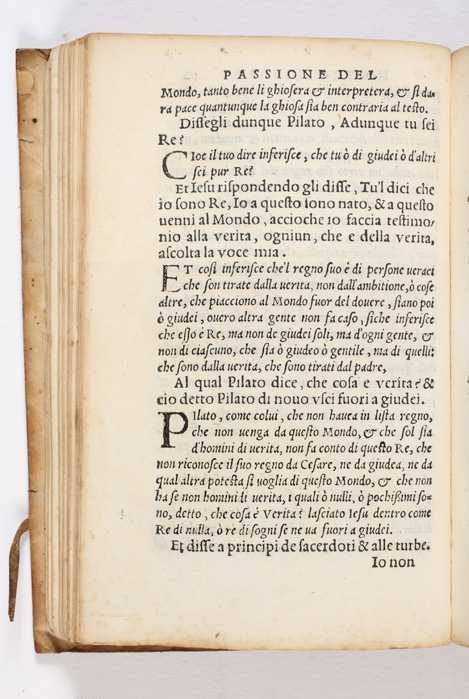 PASSIONE DEL
Mondo, tanto bene li ghiosera & interpretera, & si da-
ra pace quantunque la ghiosa sia ben contraria al testo.
Dissegli dunque Pilato, Adunque tu sei
Re?
CIoe il tuo dire inferisce, che tu ò di giudei ò d'altri
sei pur Re?
Et Iesu rispondendo gli disse, Tu'l dici che
io sono Re, Io a questo sono nato, & a questo
uenni al Mondo, accioche io faccia testimo-
nio alla verita, ogniun, che e della verita,
ascolta la voce mia.
ET cosi inferisce che'l regno suo é di persone ueraci
che son tirate dalla uerita, non dall'ambitione, ò cose
altre, che piacciono al Mondo fuor del douere, siano poi
ò giudei, ouero altra gente non fa caso, siche inferisce
che esso é Re, ma non de giudei soli, ma d'ogni gente, &
non di ciascuno, che sia ò giudeo ò gentile, ma di quelli:
che sono dalla uerita, che sono tirati dal padre,
Al qual Pilato dice, che cosa e verita? &
cio detto Pilato di nouo vsci fuori a giudei.
PIlato, come colui, che non hauea in lista regno,
che non uenga da questo Mondo, & che sol sia
d'homini di uerita, non fa conto di questo Re, che
non riconosce il suo regno da Cesare, ne da giudea, ne da
qual altra potesta si uoglia di questo Mondo, & che non
ha se non homini di uerita, i quali ò nulli, ò pochissimi so-
no, detto, che cosa è Verita? lasciato Iesu dentro come
Re di nulla, ò re di sogni se ne ua fuori a giudei.
Et disse a principi de sacerdoti & alle turbe.
Io non